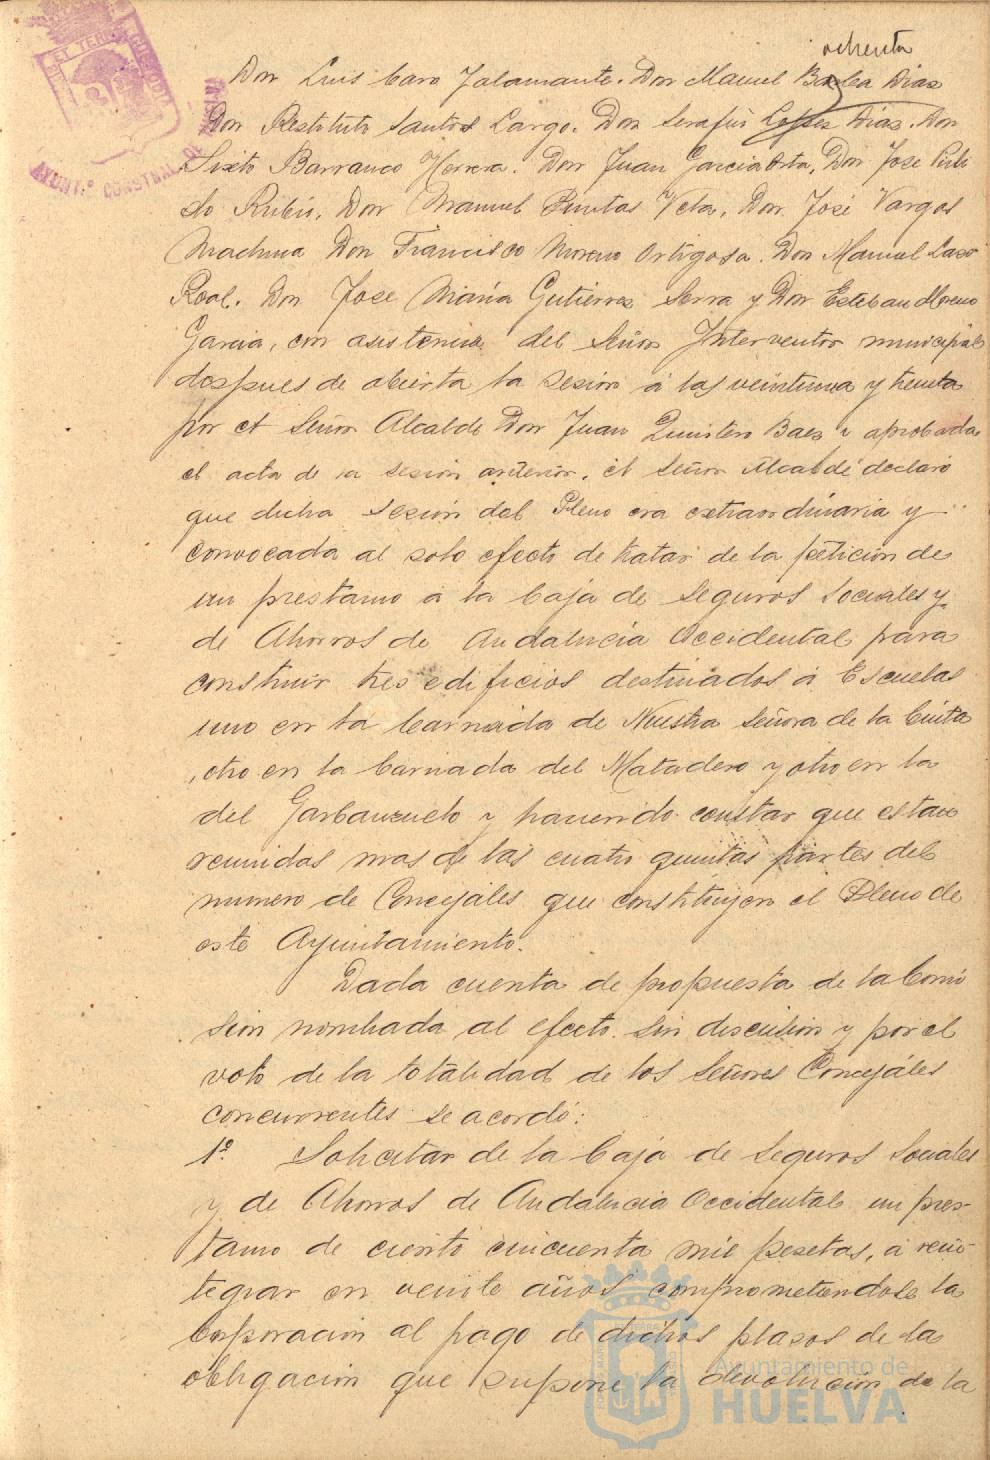 ochenta
Don Luis Caro Jalamante. Don Manuel Barba Dias
Don Restituto Santos Largo. Don Serafin Lopez Dias. Don
Sixto Barranco Herrera. Don Juan Garcia Orta, Don Jose Puli
do Rubio, Don Manuel Puntas Vela, Don José Vargas
Machuca Don Francisco Moreno Ortigosa. Don Manuel Laso
Real. Don Jose Maria Gutierrez Serra y Don Esteban Moreno
Garcia, con asistencia del Señor Interventor municipal
despues de abierta la sesion á las veintiuna y treinta
por el Señor Alcalde Don Juan Quintero Baez y aprobada
el acta de la sesion anterior, el Señor Alcalde declaró
que dicha sesion del Pleno era extraordinaria y
convocada al solo efecto de tratar de la petición de
un prestamo á la Caja de Seguros Sociales y
de Ahorros de Andalucia Occidental para
construir tres edificios destinados á Escuelas
uno en la barriada de Nuestra Señora de la Cinta
, otro en la barriada del Matadero y otro en la
del Garbanzuelo y haciendo constar que estan
reunidas mas de las cuatro quintas partes del
numero de Concejales que constituyen el Pleno de
este Ayuntamiento.
Dada cuenta de propuesta de la Comi
sion nombrada al efecto, sin discusion y por el
voto de la totalidad de los Señores Concejáles
concurrentes se acordó:
1º. Solicitar de la Caja de Seguros Sociales
y de Ahorros de Andalucia Occidental un pres-
tamo de ciento cincuenta mil pesetas, á rein-
tegrar en veinte años comprometiendose la
Corporacion al pago de dichos plazos de la
obligacion que supone la devolución de la
Ayuntamiento de
HUELVA